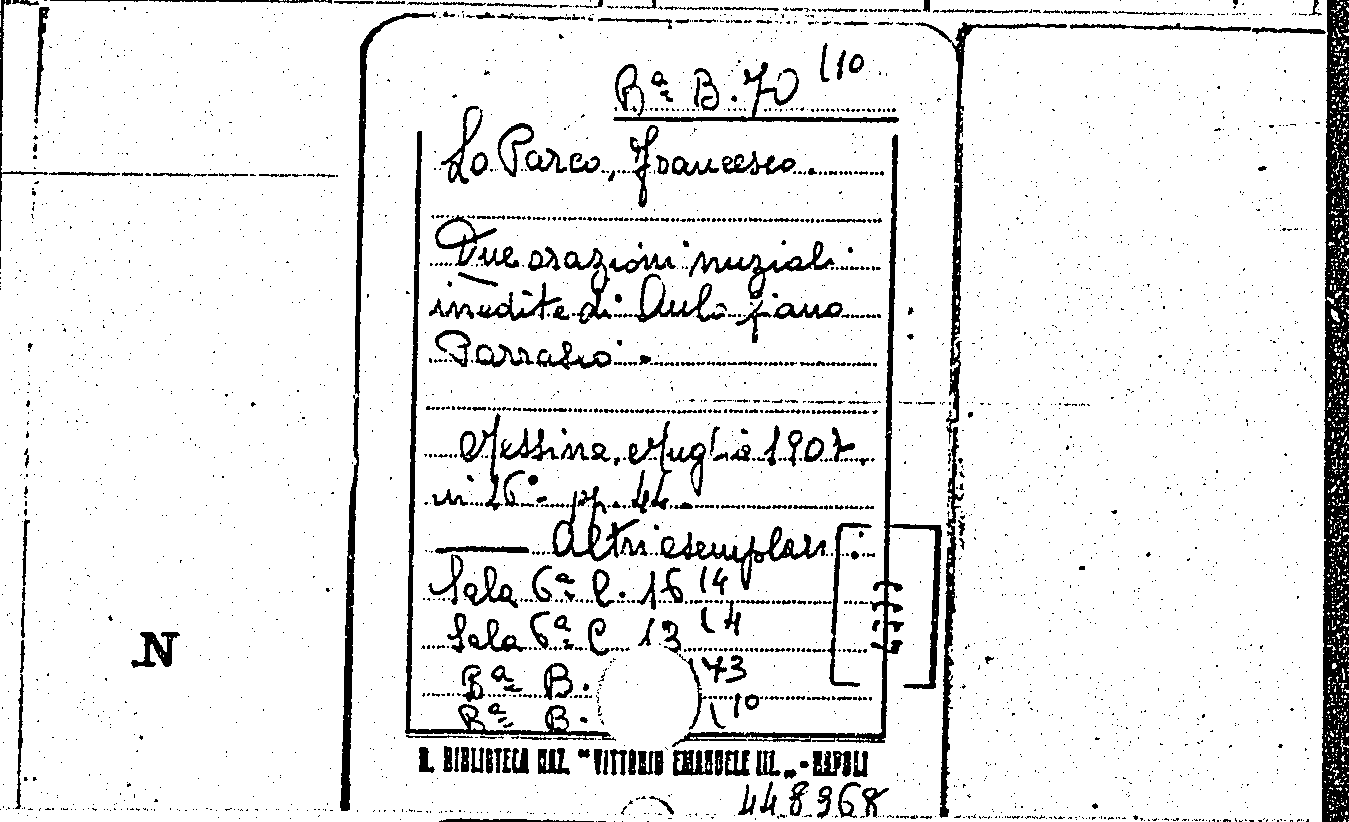 Bª B. 70 (10
Lo Parco, Francesco.
Due orazioni nuziali
inedite di Aulo Jano
Parrasio.
Messina, Muglia 1907.
in 16° pp. 44.
Altri esemplari:
Sala 6ª C. 16 (4
Sala 6ª C 13 (4
Bª B. (73
Bª B. (10
N
R. BIBLIOTECA NAZ. "VITTORIO EMANUELE III." - NAPOLI
448968